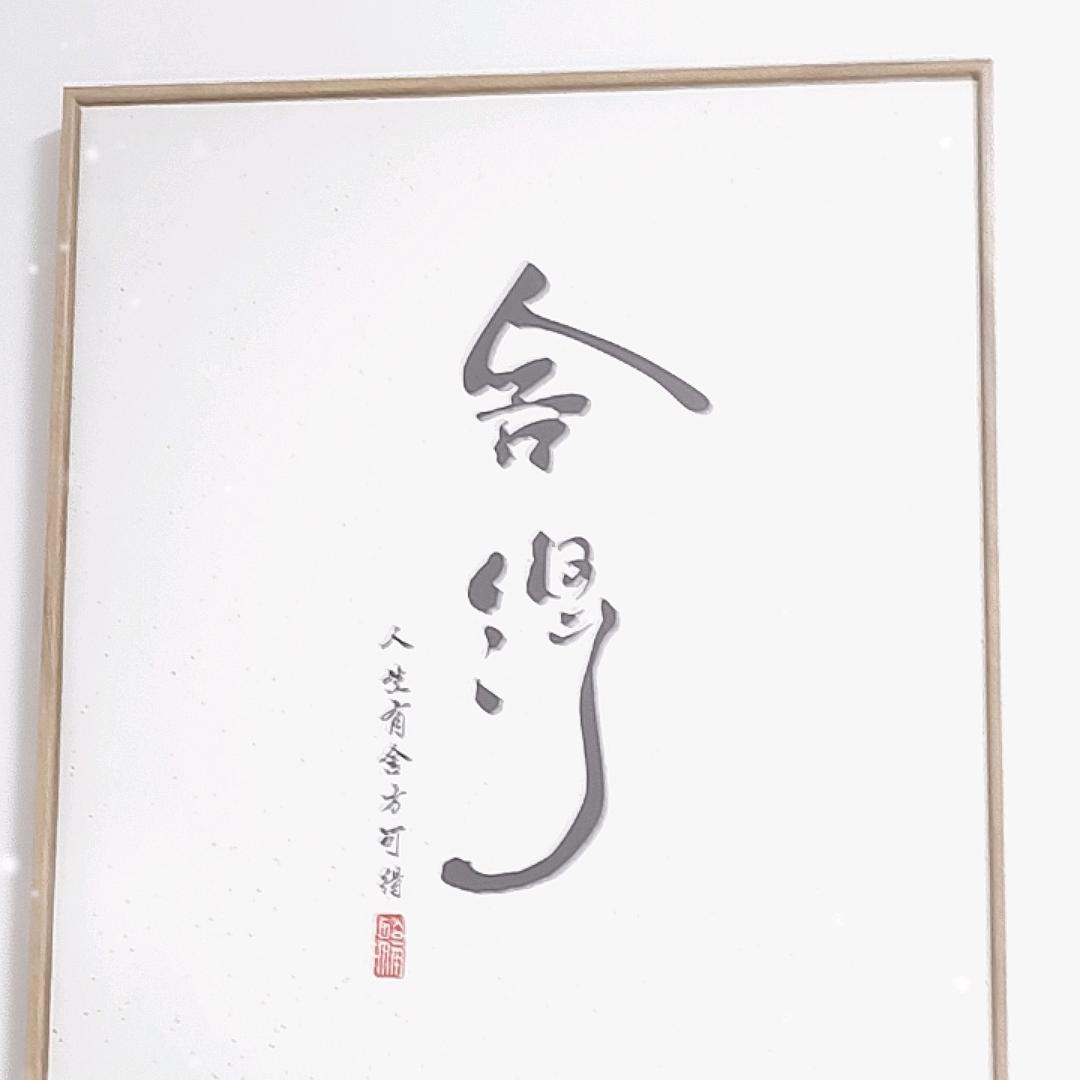 舍得
人生有舍方可得